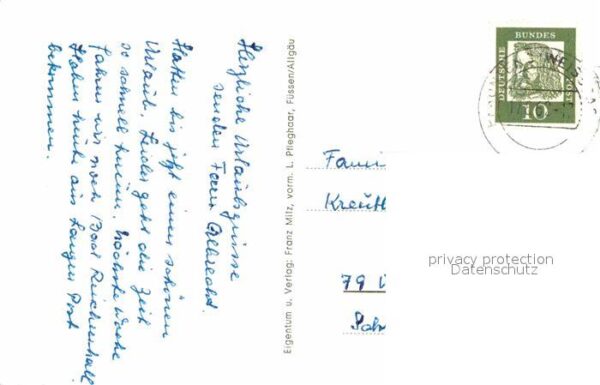 Herzliche Urlaubsgrüsse
senden Fam. Albrecht.
Hatten bis jetzt einen schönen
Urlaub. Leider geht die Zeit
so schnell herum. Nächste Woche
fahren wir noch Bad Reichenhall.
Haben heute aus Post
bekommen.
Eigentum u. Verlag: Franz Milz, vorm. L. Pflieghaar, Füssen/Allgäu
DEUTSCHE
BUNDES
POST
10
Fami
Kreutt
79
privacy protection
Datenschutz